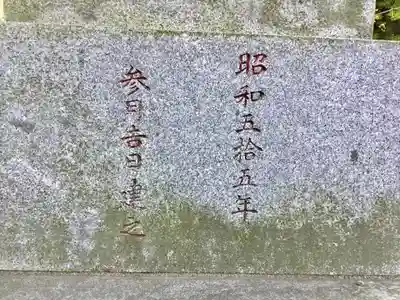 昭和五拾五年
参月吉日建之